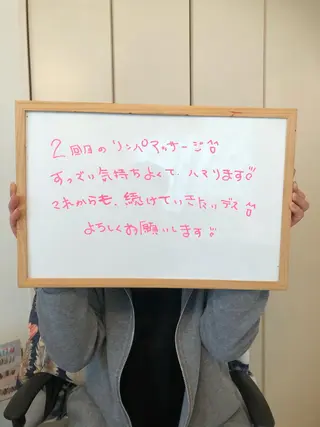 2回目のリンパマッサージ
すっごい気持ちよくて、ハマります
これからも、続けていきたいデス
よろしくお願いします